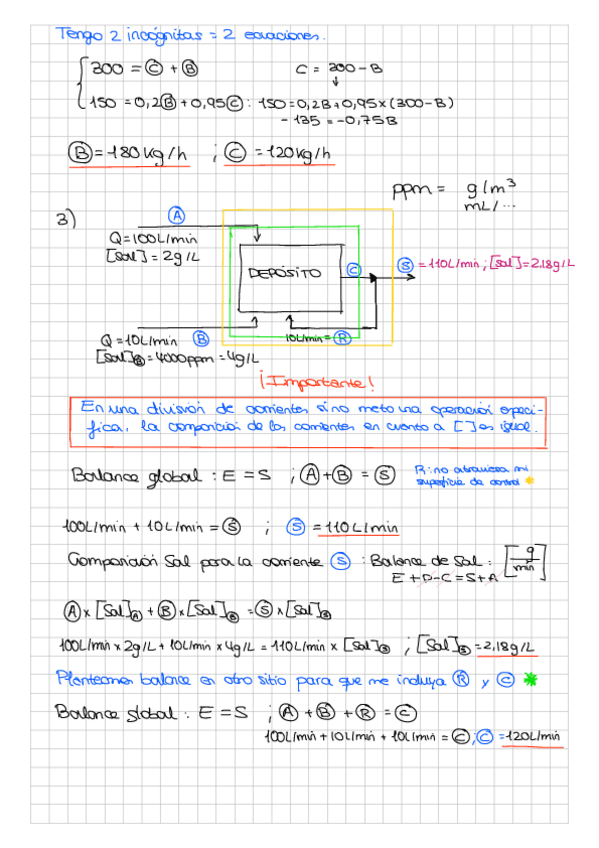 Tengo 2 incógnitas = 2 ecuaciones.
300 = C + B
C = 300 - B
150 = 0,2B + 0,95C : 150 = 0,2B + 0,95 x (300 - B)
- 135 = -0,75B
B = 180 kg/h ; C = 120 kg/h
ppm = g/m³
mL/...
3)
A
Q = 100L/min
[Sal] = 2g/L
DEPÓSITO
C
S = 110L/min ; [Sal] = 2.18g/L
Q = 10L/min B
10L/min = R
[Sal]B = 4000ppm = 4g/L
¡Importante!
En una división de corrientes si no meto una operación especí-
fica, la composición de las corrientes en cuanto a [ ] es igual.
Balance global : E = S ; A + B = S
R: no atraviesa mi
superficie de control
100L/min + 10L/min = S ; S = 110L/min
Composición Sal para la corriente S : Balance de Sal : [g/min]
E + P - C = S + A
A x [Sal]A + B x [Sal]B = S x [Sal]S
100L/min x 2g/L + 10L/min x 4g/L = 110L/min x [Sal]S ; [Sal]S = 2,18g/L
Planteamos balance en otro sitio para que me incluya R y C *
Balance global : E = S ; A + B + R = C
100L/min + 10L/min + 10L/min = C ; C = 120L/min